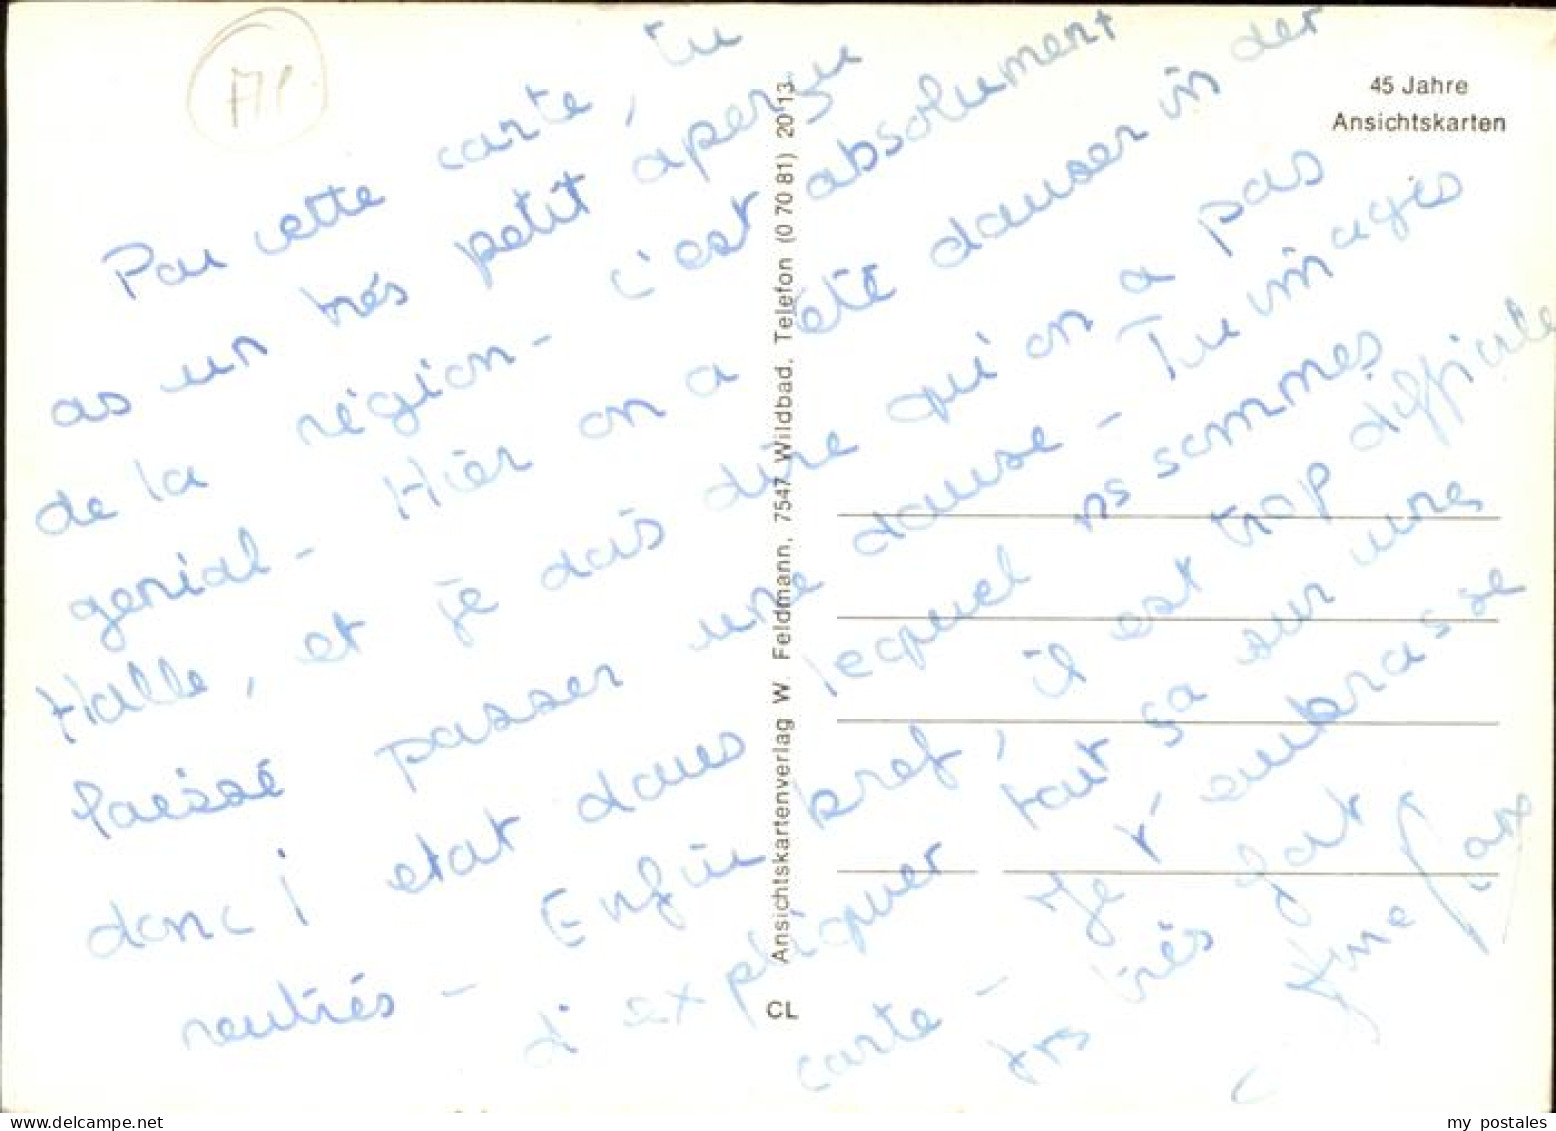 Par cette carte, tu
as un très petit aperçu
de la région - c'est absolument
genial - Hier on a été danser in der
Halle, et je dois dire qu'on a pas
laissé passer une danse - Tu imagies
donc l'etat dans lequel ns sommes
rentrés - Enfin bref, il est trop difficile
d'expliquer tout sa sur une
carte - Je t'embrasse
trs très fort
Anne
45 Jahre
Ansichtskarten
Ansichtskartenverlag W. Feldmann, 7547 Wildbad, Telefon (0 70 81) 20 13
CL
my postales